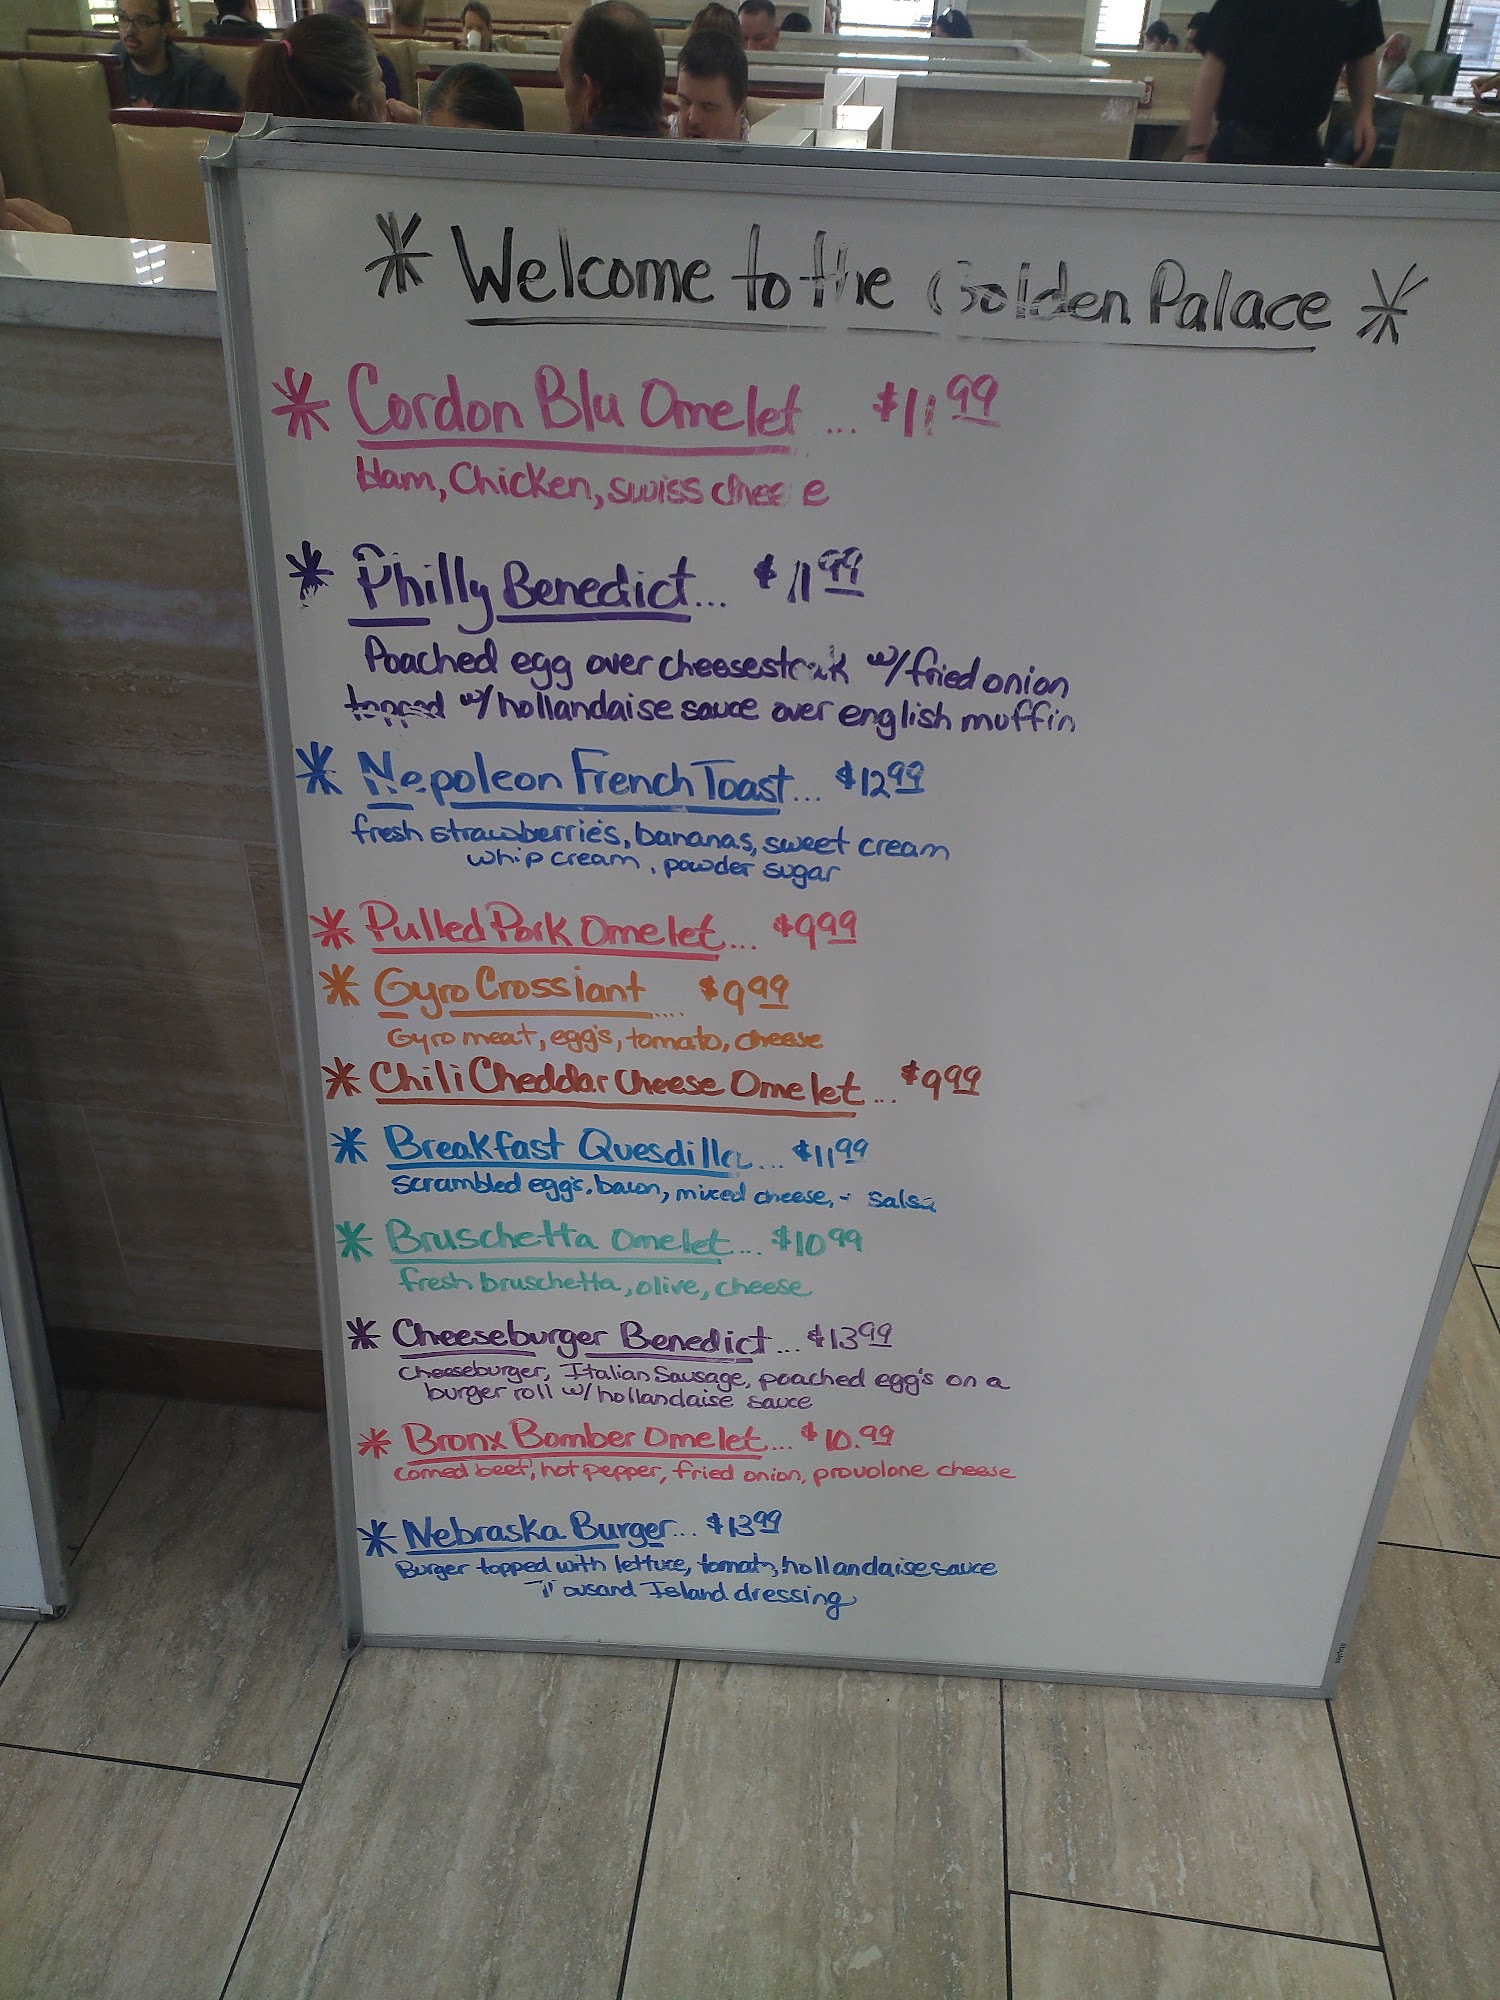 * Welcome to the Golden Palace *
* Cordon Blu Omelet ... $11 99
Ham, Chicken, swiss cheese
* Philly Benedict... $11 99
Poached egg over cheesesteak w/ fried onion
topped w/ hollandaise sauce over english muffin
* Nepoleon French Toast... $12 99
fresh strawberrie's, bananas, sweet cream
whip cream, powder sugar
* Pulled Pork Omelet... $9 99
* Gyro Crossiant .... $9 99
Gyro meat, egg's, tomato, cheese
* Chili Cheddar Cheese Omelet... $9 99
* Breakfast Quesdilla... $11 99
scrambled egg's, bacon, mixed cheese, - salsa
* Bruschetta Omelet... $10 99
fresh bruschetta, olive, cheese
* Cheeseburger Benedict... $13 99
cheeseburger, Italian Sausage, poached egg's on a
burger roll w/ hollandaise sauce
* Bronx Bomber Omelet... $10.99
corned beef, hot pepper, fried onion, provolone cheese
* Nebraska Burger... $13 99
Burger topped with lettuce, tomato, hollandaise sauce
Thousand Island dressing
Staples